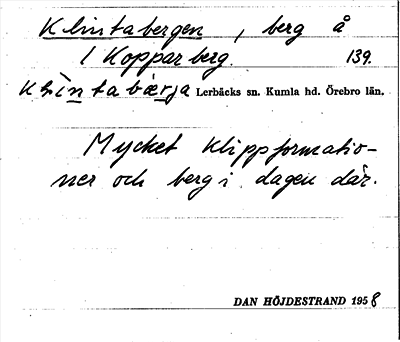 Klintabergen, berg å
1 Kopparberg. 139.
klìntabærja Lerbäcks sn. Kumla hd. Örebro län.
Mycket klippformatio-
ner och berg i dagen där.
DAN HÖJDESTRAND 1958